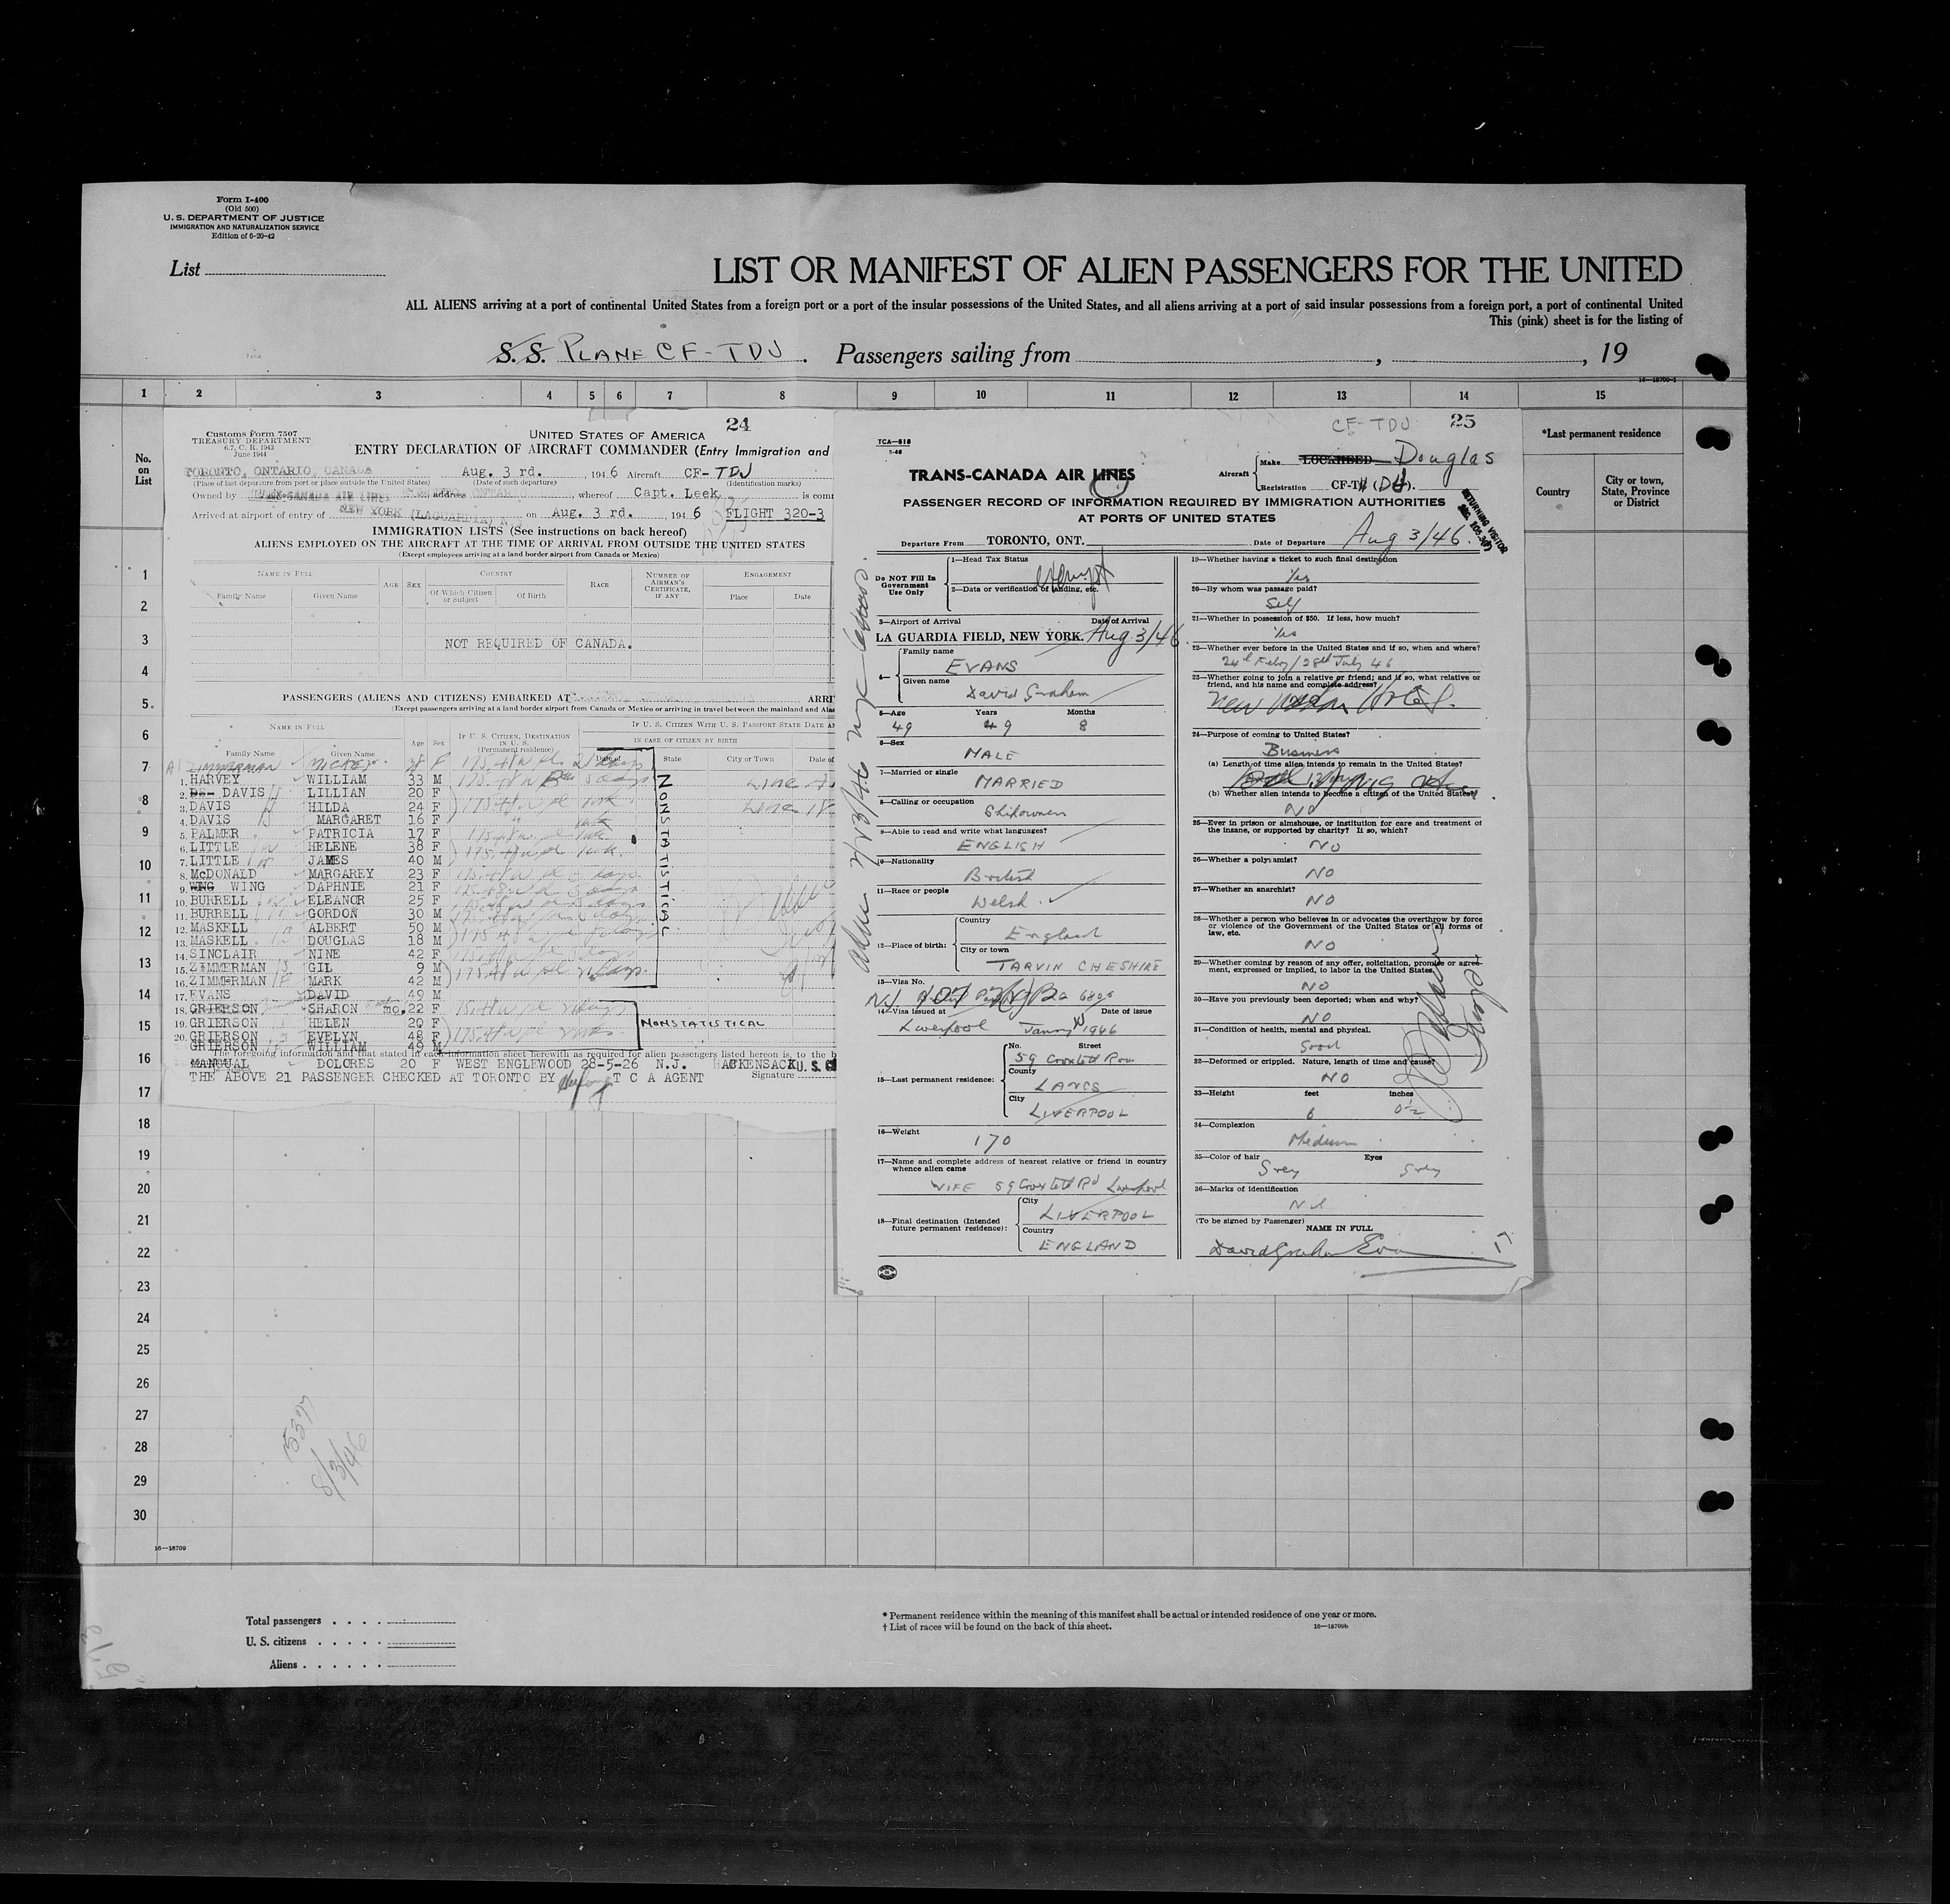 Form I-400
(Old 500)
U. S. DEPARTMENT OF JUSTICE
IMMIGRATION AND NATURALIZATION SERVICE
Edition of 6-20-42
List
LIST OR MANIFEST OF ALIEN PASSENGERS FOR THE UNITED
ALL ALIENS arriving at a port of continental United States from a foreign port or a port of the insular possessions of the United States, and all aliens arriving at a port of said insular possessions from a foreign port, a port of continental United
This (pink) sheet is for the listing of
S. S. PLANE CF-TDJ. Passengers sailing from , , 19
16—18709-1
1 2 3 4 5 6 7 8 9 10 11 12 13 14 15
No. on List
*Last permanent residence
Country
City or town, State, Province or District
24
Customs Form 7507
TREASURY DEPARTMENT
6.7, C. R. 1943
June 1944
UNITED STATES OF AMERICA
ENTRY DECLARATION OF AIRCRAFT COMMANDER (Entry Immigration and
TORONTO, ONTARIO, CANADA Aug. 3 rd. , 194 6 Aircraft CF-TDJ
(Place of last departure from port or place outside the United States) (Date of such departure) (Identification marks)
Owned by TRANS-CANADA AIR LINES address , whereof Capt. Leek
Arrived at airport of entry of NEW YORK (LAGUARDIA) on Aug. 3 rd. , 194 6 FLIGHT 320-3
IMMIGRATION LISTS (See instructions on back hereof)
ALIENS EMPLOYED ON THE AIRCRAFT AT THE TIME OF ARRIVAL FROM OUTSIDE THE UNITED STATES
(Except employees arriving at a land border airport from Canada or Mexico)
NAME IN FULL
Family Name Given Name
AGE SEX
COUNTRY
Of Which Citizen or Subject Of Birth
RACE
NUMBER OF AIRMAN'S CERTIFICATE, IF ANY
ENGAGEMENT
Place Date
NOT REQUIRED OF CANADA.
PASSENGERS (ALIENS AND CITIZENS) EMBARKED AT
(Except passengers arriving at a land border airport from Canada or Mexico or arriving in travel between the mainland and
NAME IN FULL
Family Name Given Name Age Sex
IF U. S. CITIZEN, DESTINATION IN U. S.
(Permanent residence)
IF U. S. CITIZEN WITH U. S. PASSPORT STATE DATE
IN CASE OF CITIZEN BY BIRTH
Date of State City or Town Date of
ZIMMERMAN MICKEY F
1. HARVEY WILLIAM 33 M
2. DS- DAVIS LILLIAN 20 F
3. DAVIS HILDA 24 F
4. DAVIS MARGARET 16 F
5. PALMER PATRICIA 17 F
6. LITTLE HELENE 38 F
7. LITTLE JAMES 40 M
8. McDONALD MARGAREY 23 F
9. WNG WING DAPHNIE 21 F
10. BURRELL ELEANOR 25 F
11. BURRELL GORDON 30 M
12. MASKELL ALBERT 50 M
13. MASKELL DOUGLAS 18 M
14. SINCLAIR NINE 42 F
15. ZIMMERMAN GIL 9 M
16. ZIMMERMAN MARK 42 M
17. EVANS DAVID 49 M
18. GRIERSON SHARON mo. 22 F
19. GRIERSON HELEN 20 F
20. GRIERSON EVELYN 48 F
GRIERSON WILLIAM 49 M
NONSTATISTICAL
NONSTATISTICAL
The foregoing information and that stated in each information sheet herewith as required for alien passengers listed hereon is, to the
MANUAL DOLORES 20 F WEST ENGLEWOOD 28-5-26 N.J. HACKENSACK U. S.
THE ABOVE 21 PASSENGER CHECKED AT TORONTO BY T C A AGENT Signature
1
2
3
4
5
6
7
8
9
10
11
12
13
14
15
16
17
18
19
20
21
22
23
24
25
26
27
28
29
30
CF-TDJ 25
TCA—518
5-46
TRANS-CANADA AIR LINES
Aircraft Make LOCKHEED Douglas
Registration CF-T
PASSENGER RECORD OF INFORMATION REQUIRED BY IMMIGRATION AUTHORITIES
AT PORTS OF UNITED STATES
RETURNING VISITOR
Departure From TORONTO, ONT. Date of Departure Aug 3/46.
Do NOT Fill In Government Use Only
1—Head Tax Status
exempt
2—Data or verification of landing, etc.
3—Airport of Arrival Date of Arrival
LA GUARDIA FIELD, NEW YORK. Aug 3/46
4— Family name
EVANS
Given name
David Graham
5—Age Years Months
49 49 8
6—Sex
MALE
7—Married or single
MARRIED
8—Calling or occupation
Shipowner
9—Able to read and write what languages?
ENGLISH
10—Nationality
British
11—Race or people
Welsh
12—Place of birth: Country
England
City or town
TARVIN CHESHIRE
13—Visa No.
14—Visa issued at Date of issue
Liverpool 1946
15—Last permanent residence: No. Street
59 Croxteth
County
LANCS
City
LIVERPOOL
16—Weight
170
17—Name and complete address of nearest relative or friend in country whence alien came
WIFE 59 Croxteth Rd Liverpool
18—Final destination (Intended future permanent residence): City
LIVERPOOL
Country
ENGLAND
19—Whether having a ticket to such final destination
Yes
20—By whom was passage paid?
Self
21—Whether in possession of $50. If less, how much?
Yes
22—Whether ever before in the United States and if so, when and where?
24th Feby/28th July 46
23—Whether going to join a relative or friend; and if so, what relative or friend, and his name and complete address?
24—Purpose of coming to United States?
Business
(a) Length of time alien intends to remain in the United States?
(b) Whether alien intends to become a citizen of the United States?
No
25—Ever in prison or almshouse, or institution for care and treatment of the insane, or supported by charity? If so, which?
NO
26—Whether a polygamist?
NO
27—Whether an anarchist?
NO
28—Whether a person who believes in or advocates the overthrow by force or violence of the Government of the United States or all forms of law, etc.
NO
29—Whether coming by reason of any offer, solicitation, promise or agreement, expressed or implied, to labor in the United States.
NO
30—Have you previously been deported; when and why?
NO
31—Condition of health, mental and physical.
Good
32—Deformed or crippled. Nature, length of time and cause?
NO
33—Height feet inches
6 0½
34—Complexion
Medium
35—Color of hair Eyes
Grey Grey
36—Marks of identification
Nil
(To be signed by Passenger)
NAME IN FULL
David Graham Evans
17
8/3/46
16—18709
Total passengers
U. S. citizens
Aliens
* Permanent residence within the meaning of this manifest shall be actual or intended residence of one year or more.
† List of races will be found on the back of this sheet.
16—18709b